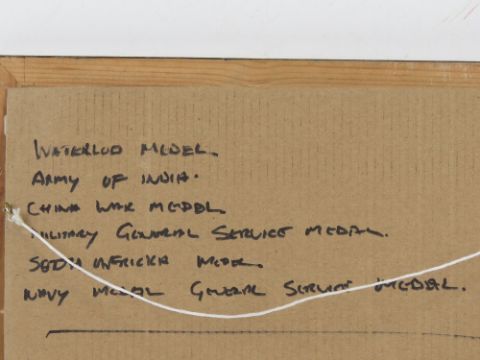 WATERLOO MEDEL.
ARMY OF INDIA.
CHINA WAR MEDAL
MILITARY GENERAL SERVICE MEDAL.
SOTH AFRICKA MEDEL.
NAVY MEDAL GENERAL SERVICE MEDAL.